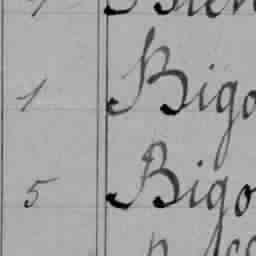 1 Bigo
5 Bigo